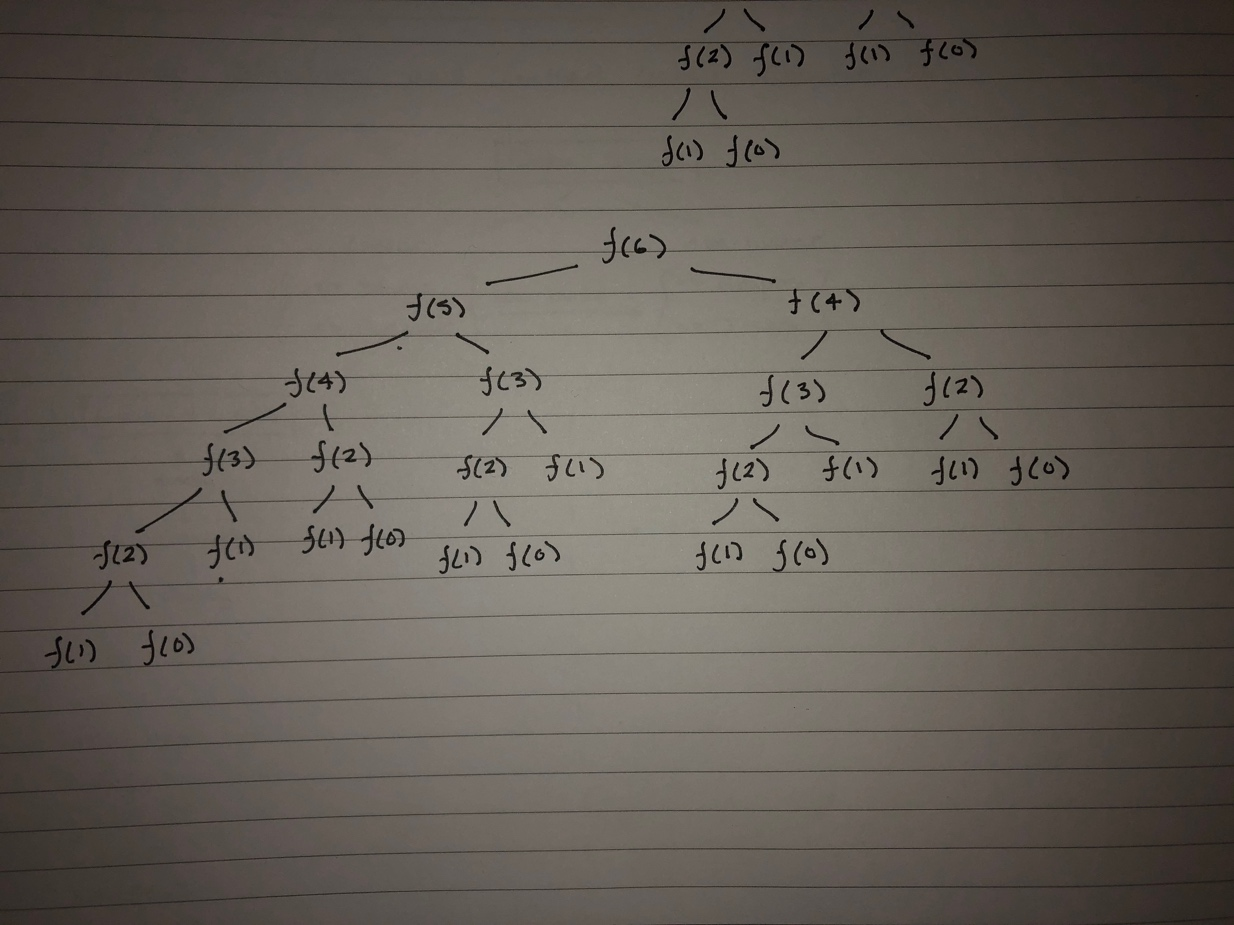 f(2) f(1) f(1) f(0)
f(1) f(0)
f(6)
f(5) f(4)
f(4) f(3) f(3) f(2)
f(3) f(2) f(2) f(1) f(2) f(1) f(1) f(0)
f(2) f(1) f(1) f(0) f(1) f(0) f(1) f(0)
f(1) f(0)